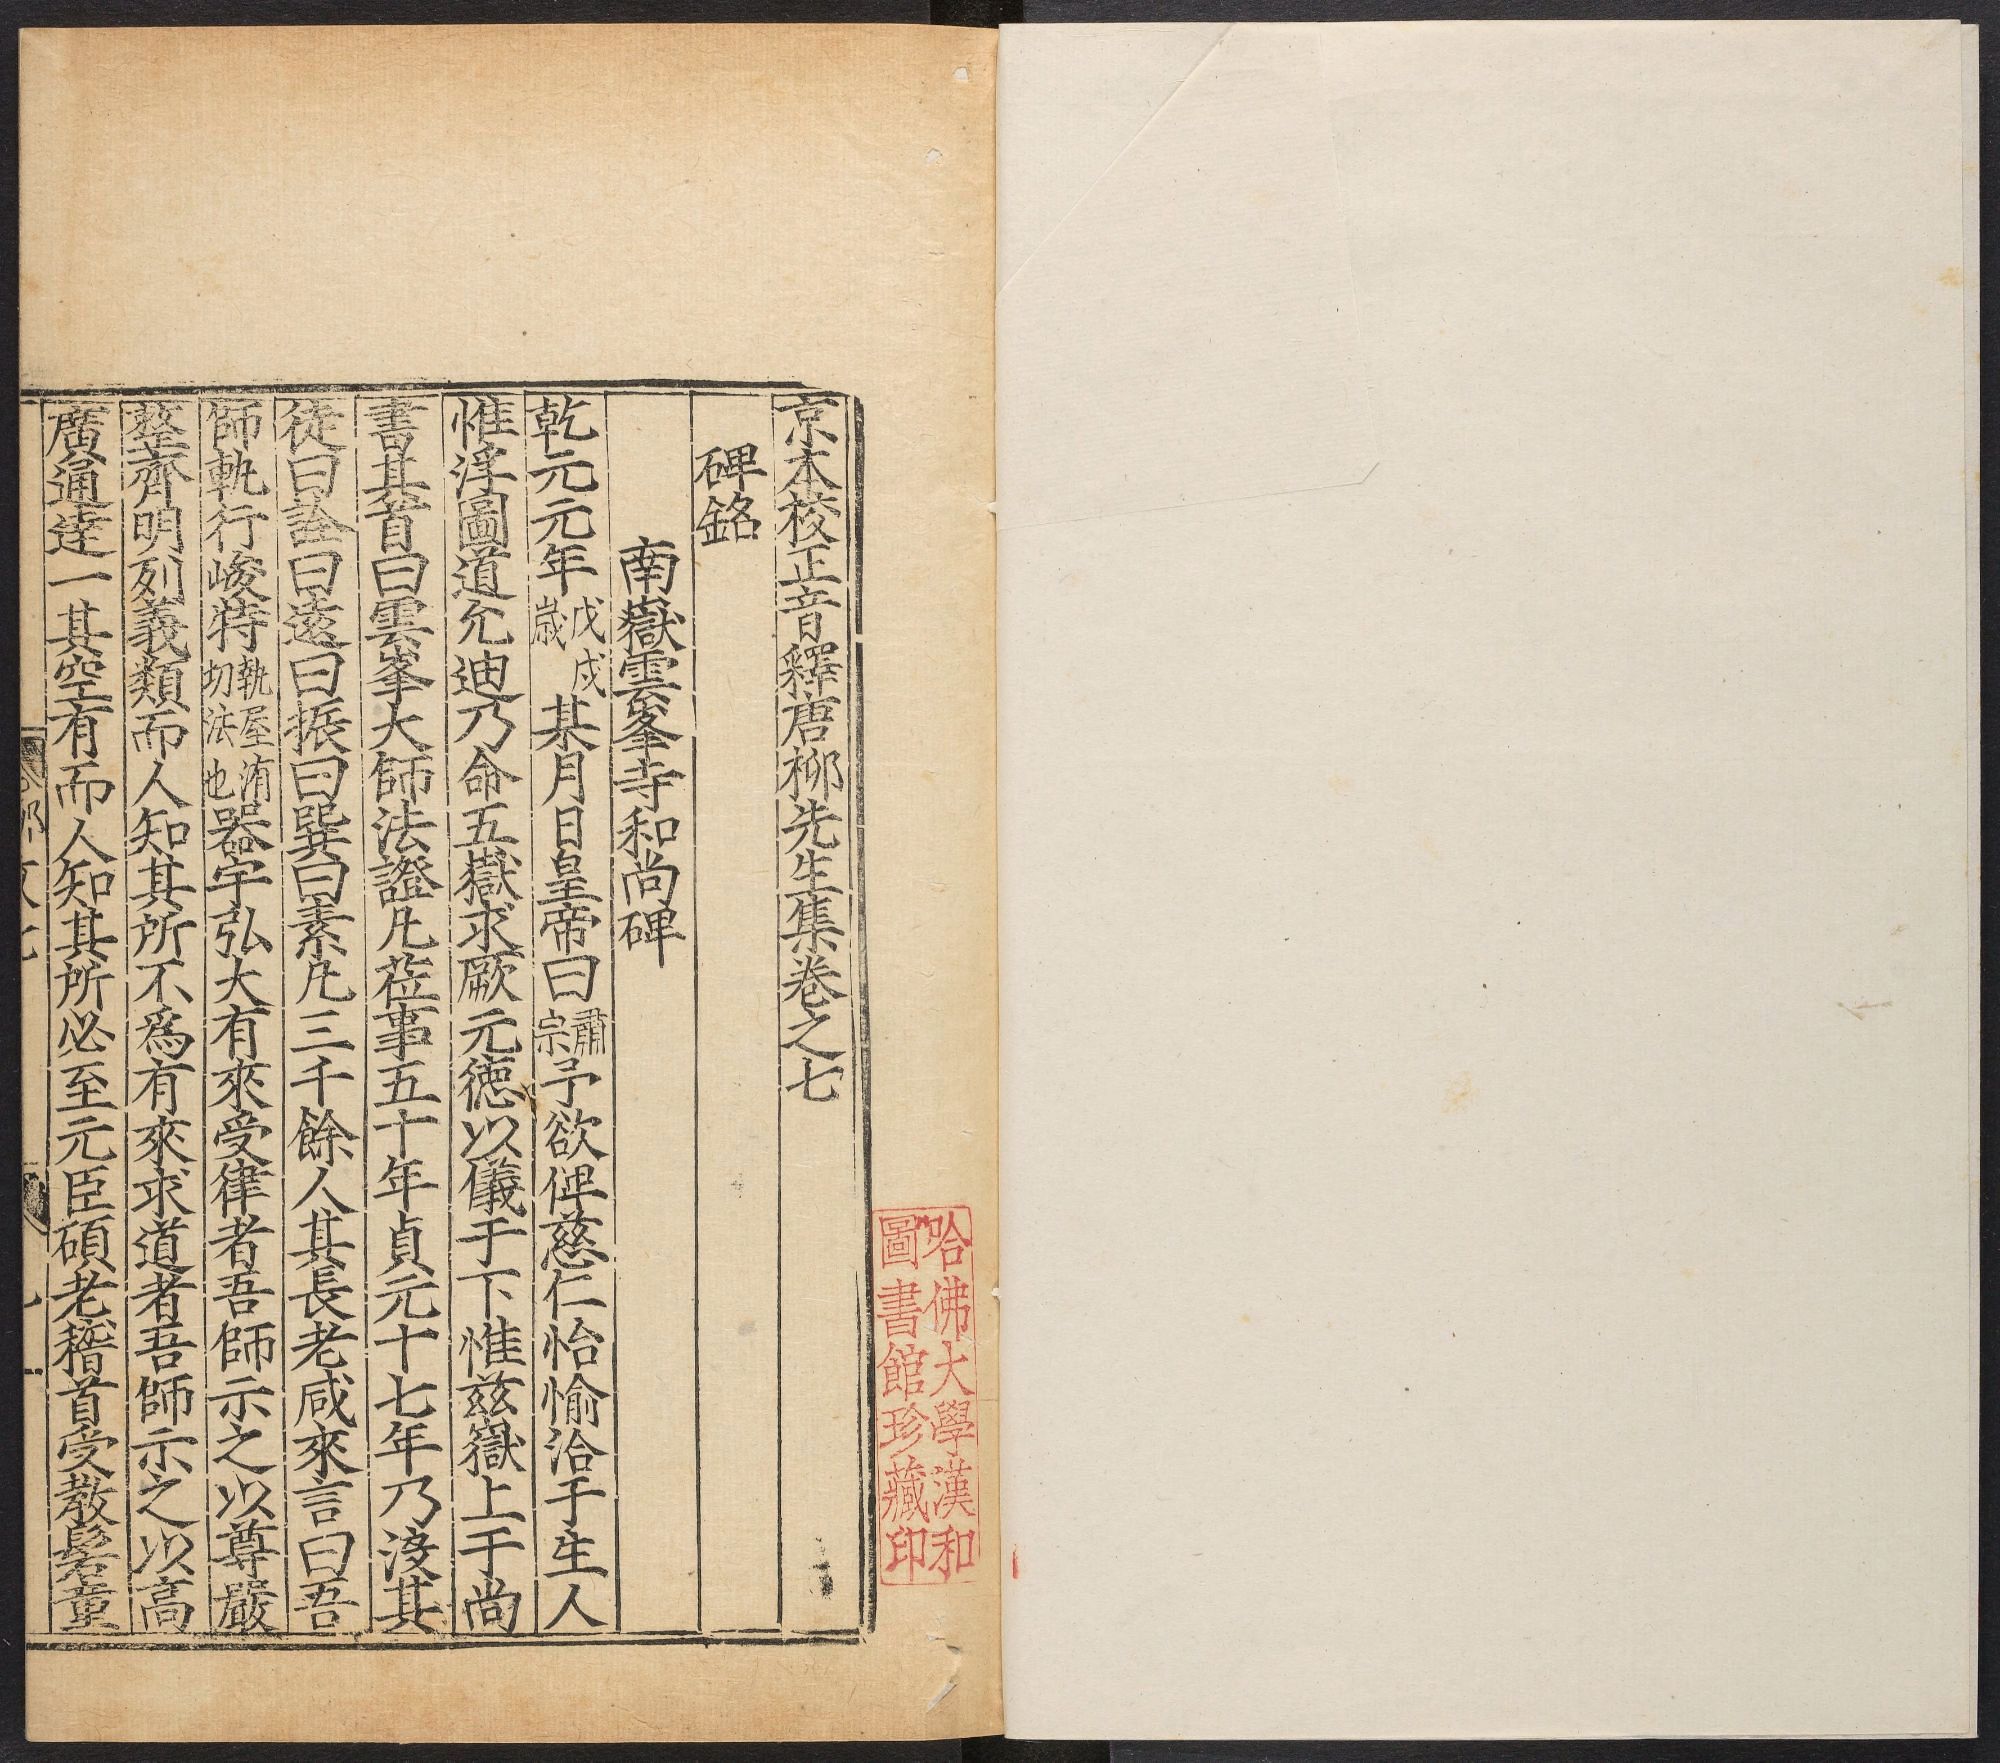 京本校正音釋唐柳先生集卷之七
碑銘
南嶽雲峯寺和尚碑
乾元元年戊戌歲某月日皇帝曰肅宗予欲俾慈仁怡愉洽于生人
惟浮圖道允迪乃命五嶽求厥元德以儀于下惟兹嶽上于尚
書其首曰雲峯大師法證凡莅事五十年貞元十七年乃没其
徒曰詮曰遠曰振曰巽曰素凡三千餘人其長老咸來言曰吾
師軌行峻特軌屋洧切法也器宇弘大有來受律者吾師示之以尊嚴
整齊明列義類而人知其所不爲有來求道者吾師示之以高
廣通達一其空有而人知其所必至元臣碩老稽首受教髫童
哈佛大學漢和
圖書館珍藏印